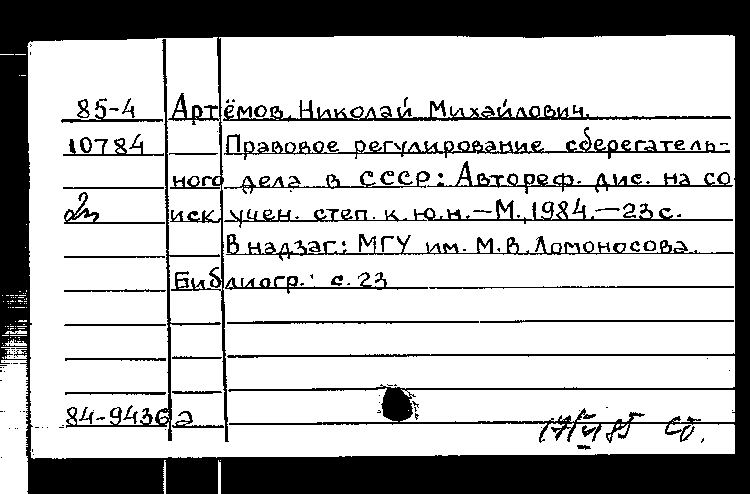 85-4 Артёмов, Николай Михайлович.
10784 Правовое регулирование сберегатель-
ного дела в СССР: Автореф. дис. на со
иск. учен. степ. к.ю.н.—М., 1984.—23 с.
В надзаг.: МГУ им. М.В. Ломоносова.
Библиогр.: с. 23
84-9436а